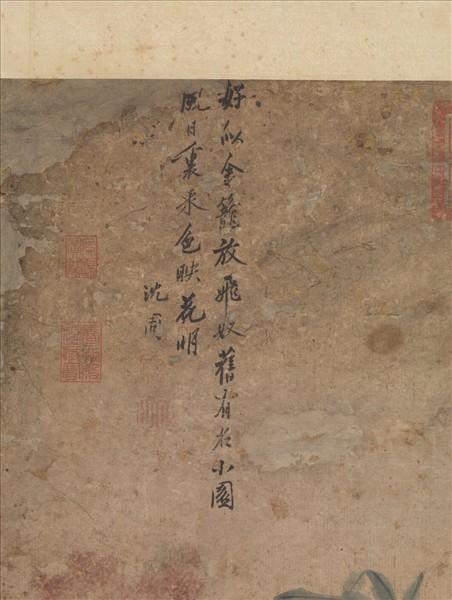 好似金籠放飛奴舊有名小園
風日裏采色映花明
沈周